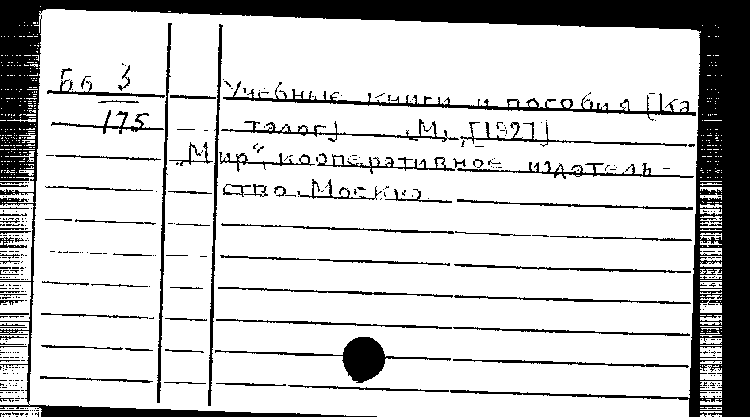 Бб 3
175
Учебные книги и пособия [Ка
талог] М., [1927]
„Мир“, кооперативное издатель-
ство. Москва